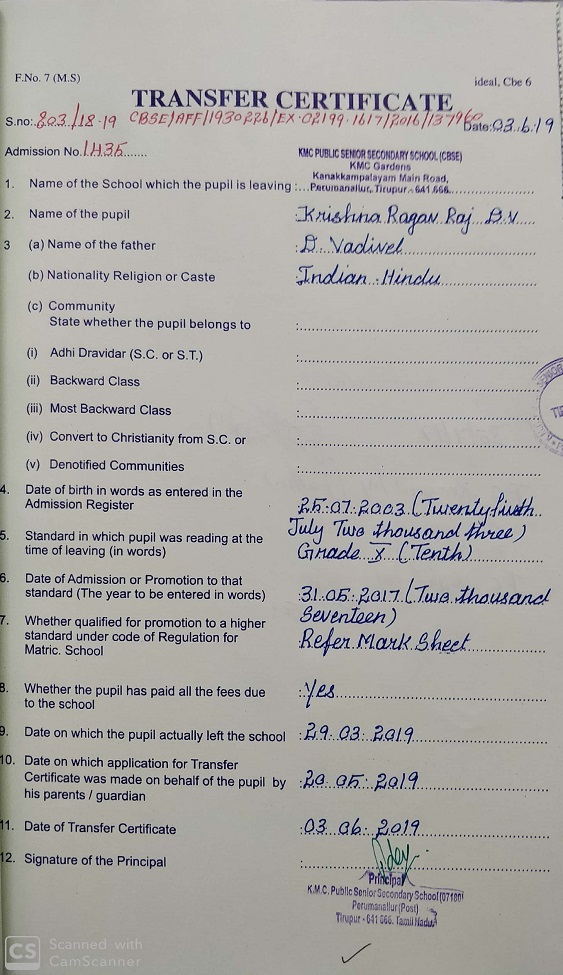 F.No. 7 (M.S)
ideal, Cbe 6
TRANSFER CERTIFICATE
S.no: 803/18-19 CBSE/AFF/1930226/EX-02199-1617/2016/137960 Date: 03.6.19
Admission No. 1435
KMC PUBLIC SENIOR SECONDARY SCHOOL (CBSE)
KMC Gardens
Kanakkampalayam Main Road,
1. Name of the School which the pupil is leaving : Perumanallur, Tirupur - 641 666.
2. Name of the pupil : Krishna Ragav Raj D.V
3 (a) Name of the father : D. Vadivel
(b) Nationality Religion or Caste : Indian - Hindu
(c) Community
State whether the pupil belongs to :
(i) Adhi Dravidar (S.C. or S.T.) :
(ii) Backward Class :
(iii) Most Backward Class :
(iv) Convert to Christianity from S.C. or :
(v) Denotified Communities :
4. Date of birth in words as entered in the
Admission Register : 25.07.2003 (Twentyfivth
July Two thousand three)
5. Standard in which pupil was reading at the
time of leaving (in words) Grade X (Tenth)
6. Date of Admission or Promotion to that
standard (The year to be entered in words) : 31.05.2017 (Two thousand
Seventeen)
7. Whether qualified for promotion to a higher
standard under code of Regulation for
Matric. School : Refer Mark Sheet
8. Whether the pupil has paid all the fees due
to the school : Yes
9. Date on which the pupil actually left the school : 29.03.2019
10. Date on which application for Transfer
Certificate was made on behalf of the pupil by
his parents / guardian : 20.05.2019
11. Date of Transfer Certificate : 03.06.2019
12. Signature of the Principal :
Principal
K.M.C. Public Senior Secondary School (07180)
Perumanallur (Post)
Tirupur - 641 666. Tamil Nadu
CS Scanned with
CamScanner